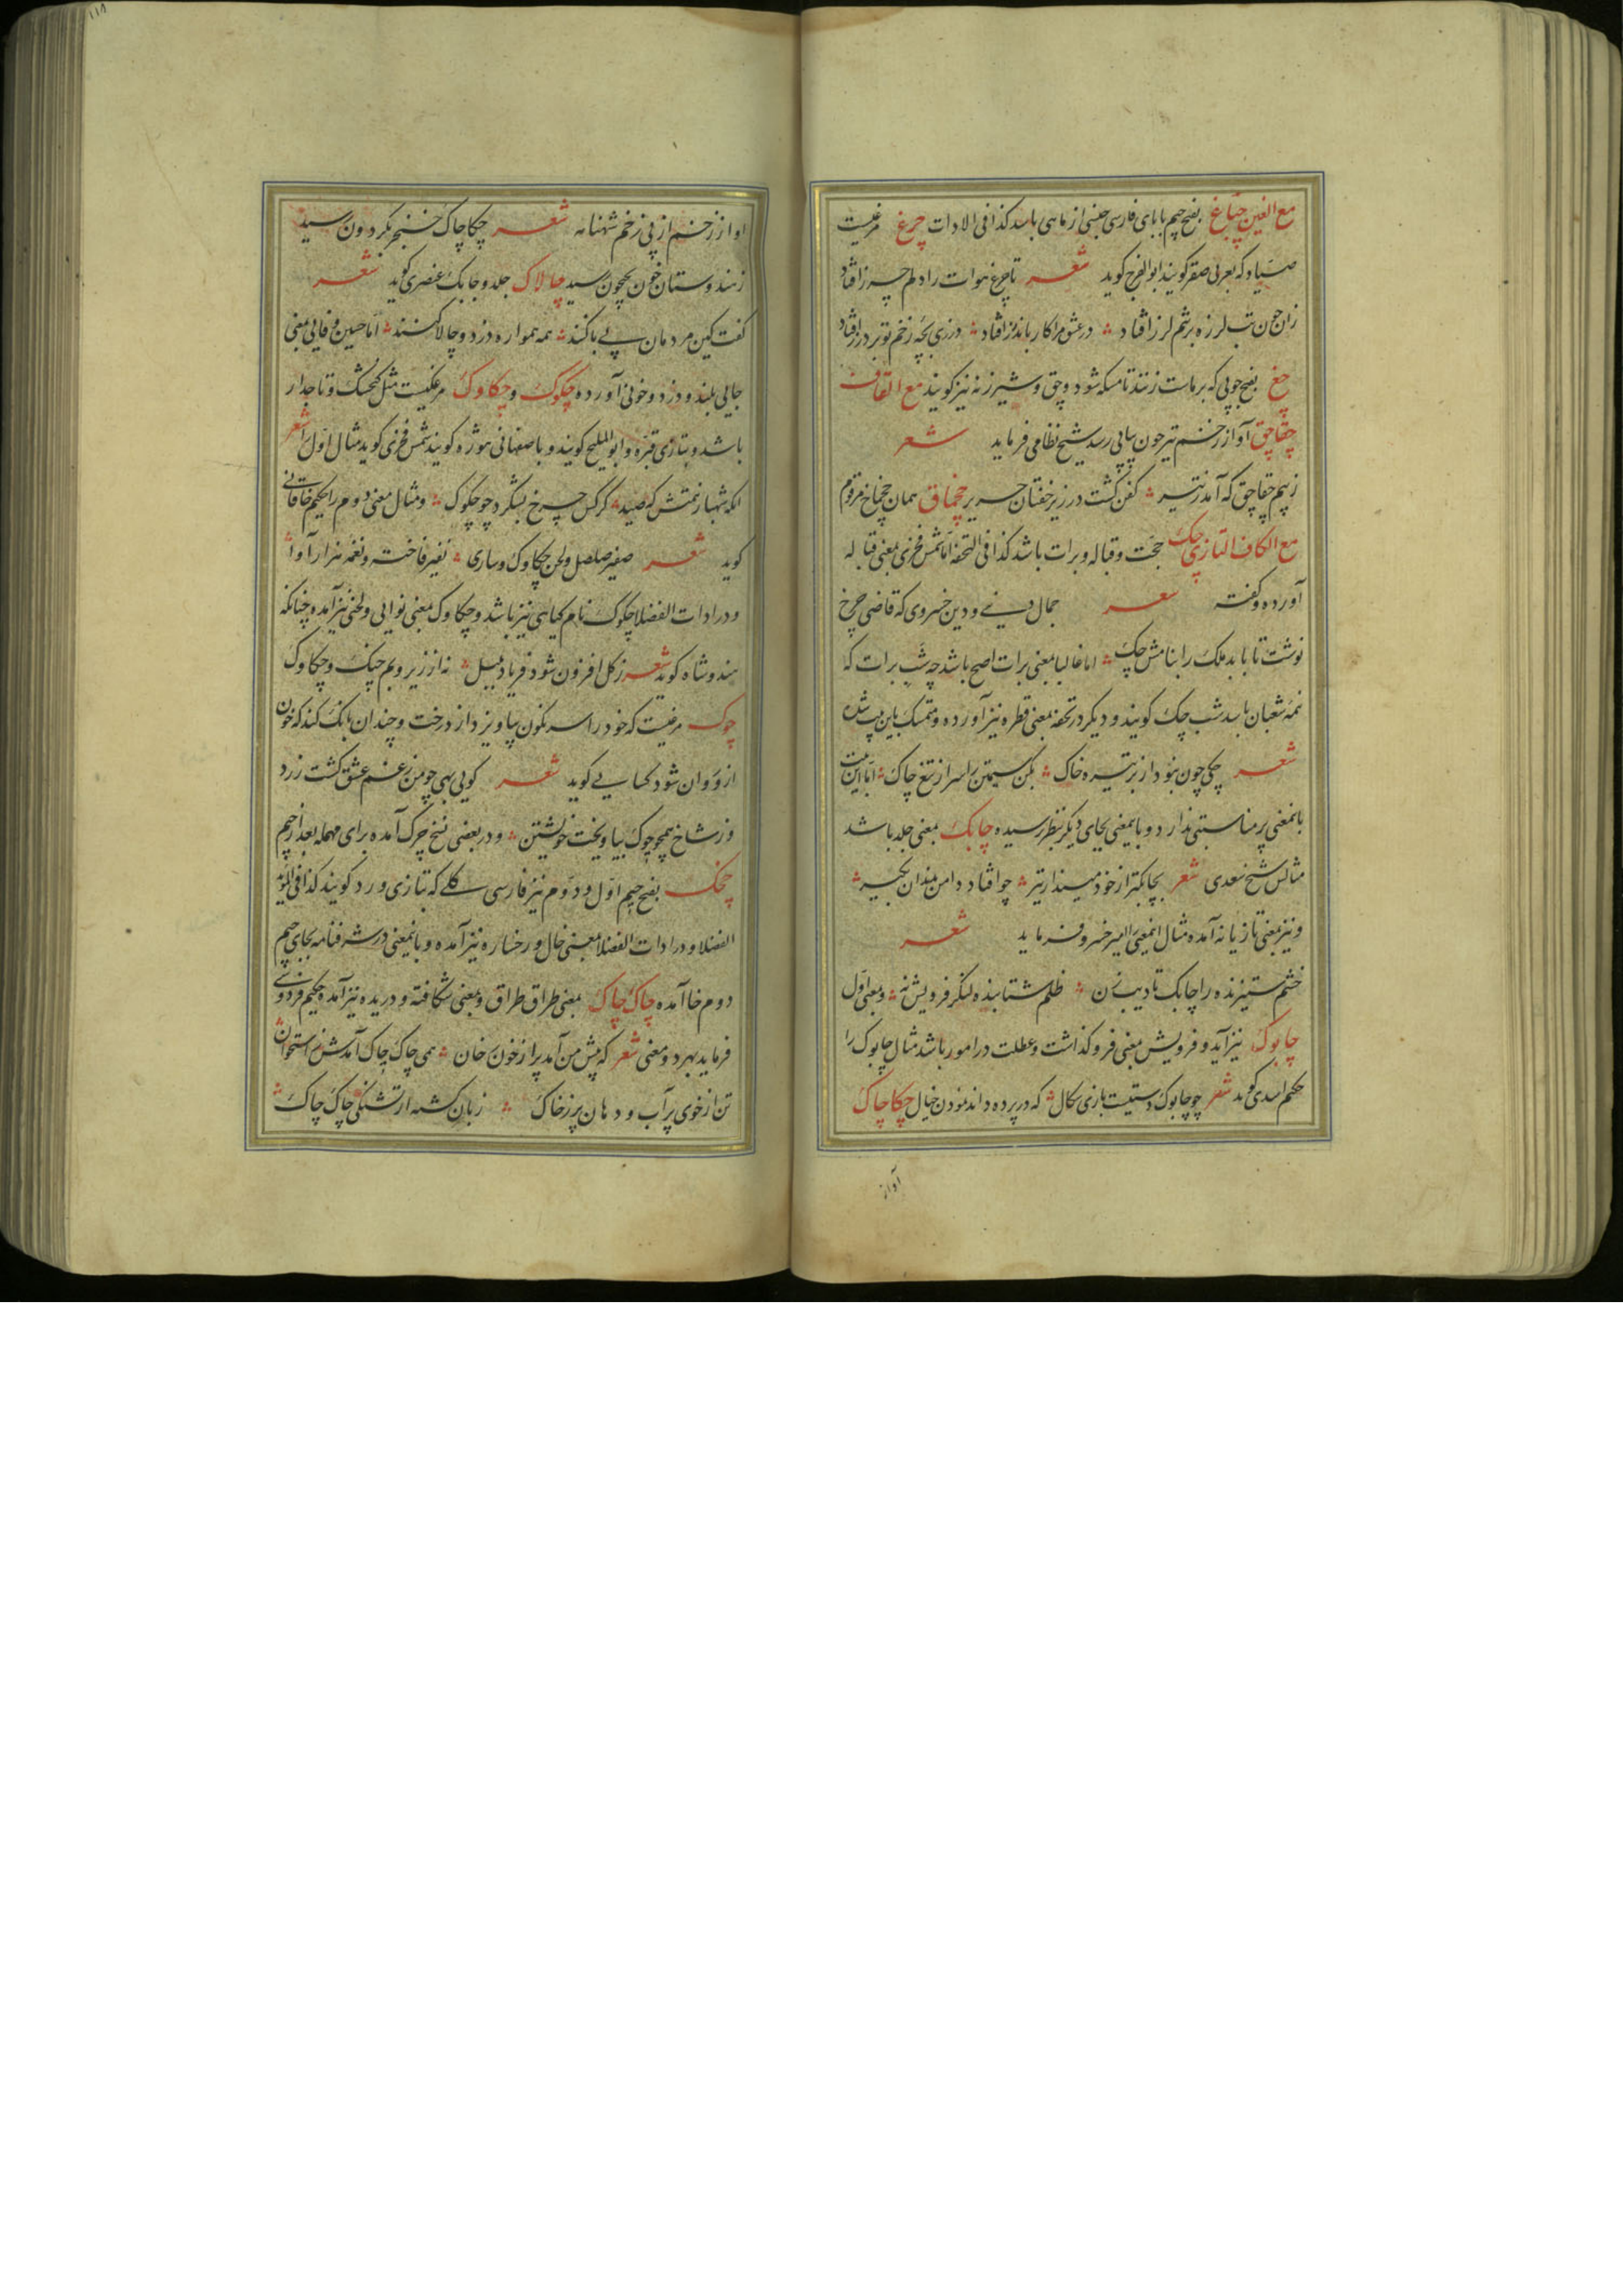 مع الغین چپاغ بفتح جیم با بای فارسی جنسی از ماهی باشد کذا فی الادات چرغ مرغیست
صیاد که بعربی صقر گویند ابوالفرج گوید شعر تا چرغ هوات را دلم چرز افتاد
زان چون تب لرزه بر تنم لرز افتاد در عشق مرا کار باندرز افتاد درزی بچه زخم تو بر درز افتاد
چغ بفتح چوبی که بر ماست زنند تا مسکه شود و چق و شیرزنه نیز گویند مع القاف
چقاچق آواز زخم تیر چون پیاپی رسد شیخ نظامی فرماید شعر
ز بیم چقاچق که آمد ز تیر کفن گشت در زیر خفتان حریر چخماق همان چخماخ مرقوم
مع الکاف التازی چک حجت و قباله و برات باشد کذا فی التحفه اما شمس فخری بمعنی قباله
آورده و گفته شعر جمال دنیی و دین خسروی که قاضی چرخ
نوشت تا بابد ملک را بنامش چک اما غالبا بمعنی برات اصح باشد چه شب برات که
نمه شعبان باشد شب چک گویند و دیگر در تحفه بمعنی قطره نیز آورده و متمسک باین بیت شده
شعر چکی چون نبود از بر تیره خاک بکن سیمتن را سر از تیغ چاک اما این بیت
باینمعنی پر مناسبتی ندارد و باینمعنی بجای دیگر بنظر نرسیده چابک بمعنی جلد باشد
مثالش شیخ سعدی شعر بچابکتر از خود مینداز تیر چو افتاد دامن بدندان بگیر
و نیز بمعنی تازیانه آمده مثال اینمعنی امیر خسرو فرماید شعر
خشم ستیزنده را چابک تادیب زن ظلم شتابنده لنگر فرویش نه و بمعنی اول
چابوک نیز آید و فرویش بمعنی فروگذاشت و عطلت در امور باشد مثال چابوک را
حکیم اسدی گوید شعر چو چابوک دستیست بازی سگال که در پرده داند نمودن خیال چکاچاک
آواز
۱۱۸
آواز زخم از پی زخم شهنامه شعر چکاچاک خنجر بگردون رسید
ز هندوستان خون بجیحون رسید چالاک جلد و چابک عنصری گوید شعر
گفت کین مردمان بی باکند همه همواره دزد و چالاکند اما حسین وفایی بمعنی
جایی بلند و دزد و خونی آورده چکوک و چکاوک مرغکیست مثل گنجشک و تاجدار
باشد و بتازی قبره و ابوالملیح گویند و باصفهانی هوژه گویند شمس فخری گوید مثال اول را شعر
آنکه شهباز همتش گه صید کرگس چرخ بشگرد چو چکوک و مثال معنی دوم را حکیم خاقانی
گوید شعر صفیر صلصل و لحن چکاوک و ساری نفیر فاخته و نغمه هزارآوا
و در ادات الفضلا چکوک نام گیاهی نیز باشد و چکاوک بمعنی نوایی و لحنی نیز آمده چنانکه
هندوشاه گوید شعر ز گل افزون شود فریاد بلبل نه از زیر و بم چنگ و چکاوک
چوک مرغیست که خود را سرنگون بیاویزد از درخت و چندان بانگ کند که خون
ازو روان شود کسایی گوید شعر گویی بهی چو من ز غم عشق گشت زرد
وز شاخ همچو چوک بیاویخت خویشتن و در بعضی نسخ چرک آمده برای مهمله بعد از جیم
چچک بفتح جیم اول و دوم نیز فارسی گلی که بتازی ورد گویند کذا فی المؤید
الفضلا و در ادات الفضلا بمعنی خال و رخساره نیز آمده و باینمعنی در شرفنامه بجای جیم
دوم خا آمده چاک چاک بمعنی طراق طراق و بمعنی شکافته و دریده نیز آمده حکیم فردوسی
فرماید بهر دو معنی شعر که پیش من آمد پر از خون رخان همی چاک چاک آمدش ز استخوان
تن از خوی پر آب و دهان پر ز خاک زبان گشته از تشنگی چاک چاک